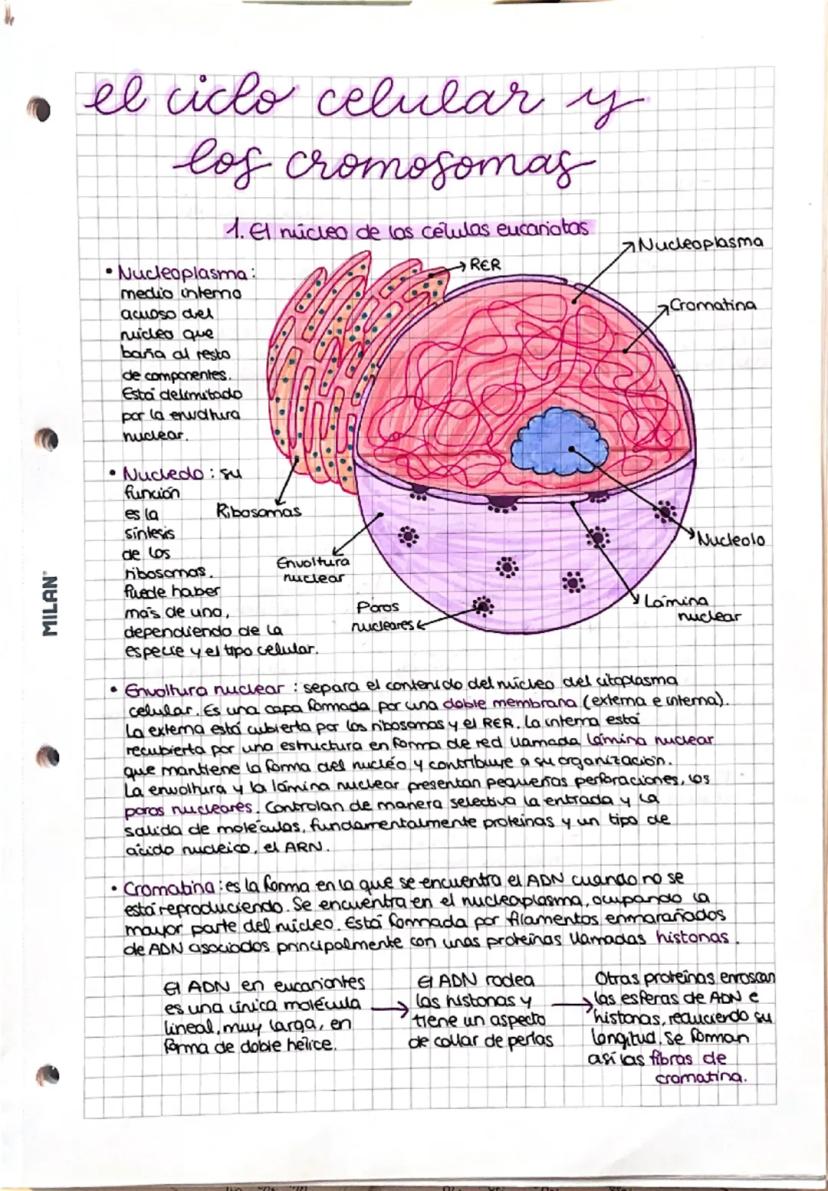 el ciclo celular y
los cromosomas
1. El núcleo de las células eucariotas
• Nucleoplasma:
medio interno
acuoso del
núcleo que
baña al resto
de componentes.
Está delimitado
por la envoltura
nuclear.
• Nucleolo: su
función
es la
síntesis
de los
ribosomas.
Puede haber
más de uno,
dependiendo de la
especie y el tipo celular.
RER
Nucleoplasma
Cromatina
Ribosomas
Envoltura
nuclear
Poros
nucleares
Nucleolo
Lámina
nuclear
MILAN
• Envoltura nuclear: separa el contenido del núcleo del citoplasma
celular. Es una capa formada por una doble membrana (externa e interna).
La externa está cubierta por los ribosomas y el RER. La interna está
recubierta por una estructura en forma de red llamada lámina nuclear
que mantiene la forma del nucléo y contribuye a su organización.
La envoltura y la lámina nuclear presentan pequeñas perforaciones, los
poros nucleares. Controlan de manera selectiva la entrada y la
salida de moléculas, fundamentalmente proteínas y un tipo de
ácido nucleico, el ARN.
• Cromatina: es la forma en la que se encuentra el ADN cuando no se
está reproduciendo. Se encuentra en el nucleoplasma, ocupando la
mayor parte del núcleo. Está formada por filamentos enmarañados
de ADN asociados principalmente con unas proteínas llamadas histonas.
El ADN en eucariontes
es una única molécula
lineal, muy larga, en
forma de doble hélice.
El ADN rodea
las histonas y
tiene un aspecto
de collar de perlas
Otras proteínas enroscan
las esferas de ADN e
histonas, reduciendo su
longitud. Se forman
así las fibras de
cromatina.